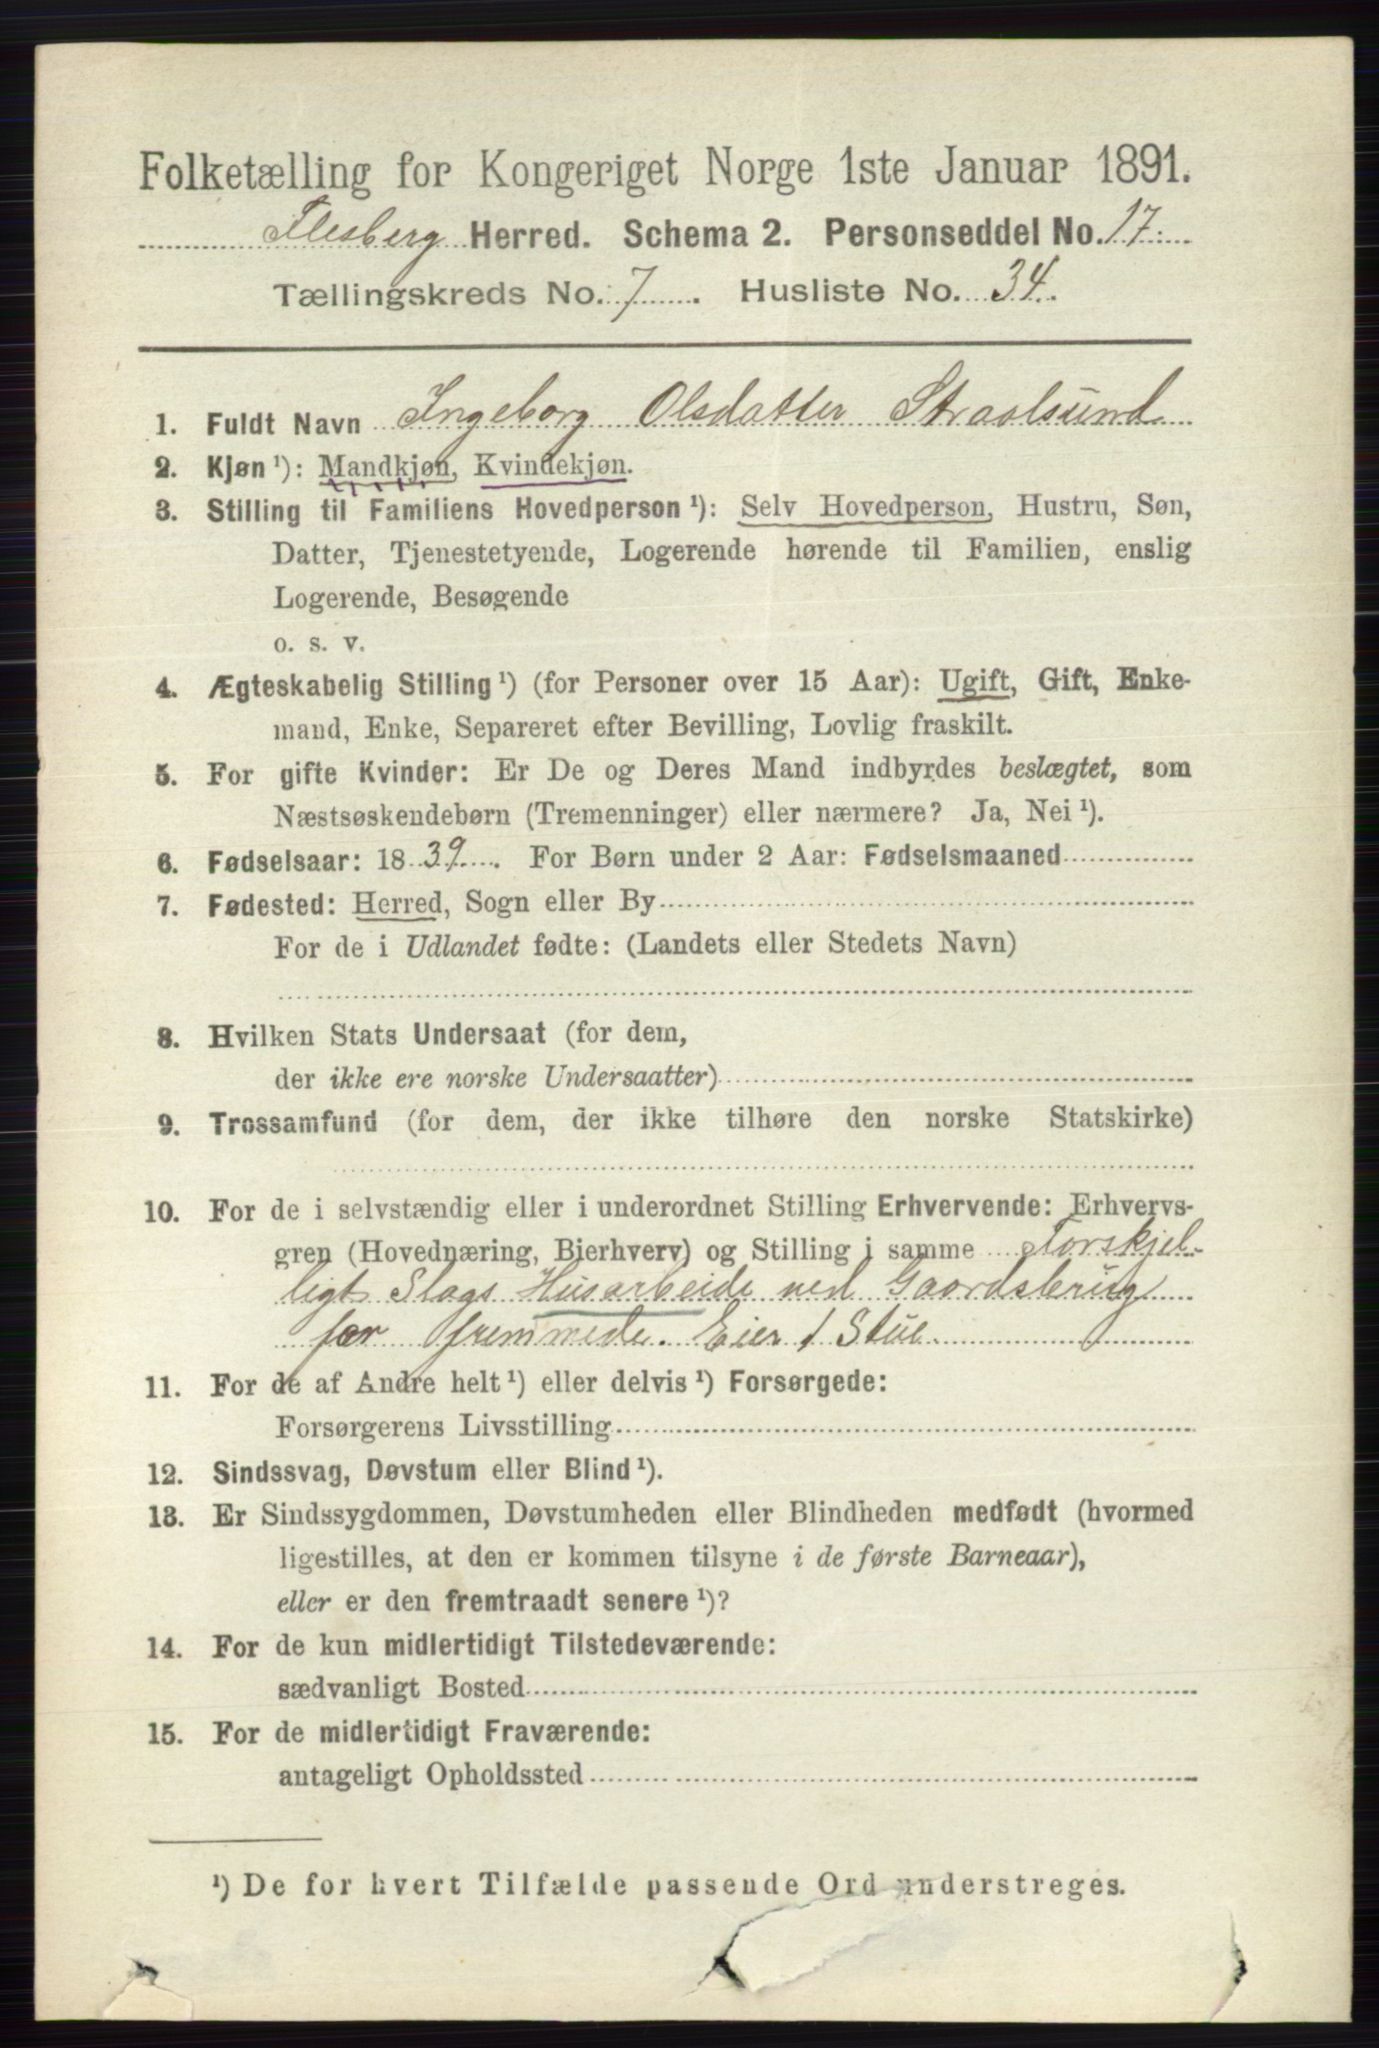 Folketælling for Kongeriget Norge 1ste Januar 1891.
Flesberg Herred. Schema 2. Personseddel No. 17.
Tællingskreds No. 7. Husliste No. 34.
1. Fuldt Navn Ingeborg Olsdatter Straalsund
2. Kjøn ¹): Mandkjøn, Kvindekjøn.
3. Stilling til Familiens Hovedperson ¹): Selv Hovedperson, Hustru, Søn,
Datter, Tjenestetyende, Logerende hørende til Familien, enslig
Logerende, Besøgende
o. s. v.
4. Ægteskabelig Stilling ¹) (for Personer over 15 Aar): Ugift, Gift, Enke-
mand, Enke, Separeret efter Bevilling, Lovlig fraskilt.
5. For gifte Kvinder: Er De og Deres Mand indbyrdes beslægtet, som
Næstsøskendebørn (Tremenninger) eller nærmere? Ja, Nei ¹).
6. Fødselsaar: 1839. For Børn under 2 Aar: Fødselsmaaned
7. Fødested: Herred, Sogn eller By
For de i Udlandet fødte: (Landets eller Stedets Navn)
8. Hvilken Stats Undersaat (for dem,
der ikke ere norske Undersaatter)
9. Trossamfund (for dem, der ikke tilhøre den norske Statskirke)
10. For de i selvstændig eller i underordnet Stilling Erhvervende: Erhvervs-
gren (Hovednæring, Bierhverv) og Stilling i samme Forskjel-
ligt Slags Husarbeide ved Gaardsbrug
for fremmede. Eier 1 Stue
11. For de af Andre helt ¹) eller delvis ¹) Forsørgede:
Forsørgerens Livsstilling
12. Sindssvag, Døvstum eller Blind ¹).
13. Er Sindssygdommen, Døvstumheden eller Blindheden medfødt (hvormed
ligestilles, at den er kommen tilsyne i de første Barneaar),
eller er den fremtraadt senere ¹)?
14. For de kun midlertidigt Tilstedeværende:
sædvanligt Bosted
15. For de midlertidigt Fraværende:
antageligt Opholdssted
¹) De for hvert Tilfælde passende Ord understreges.